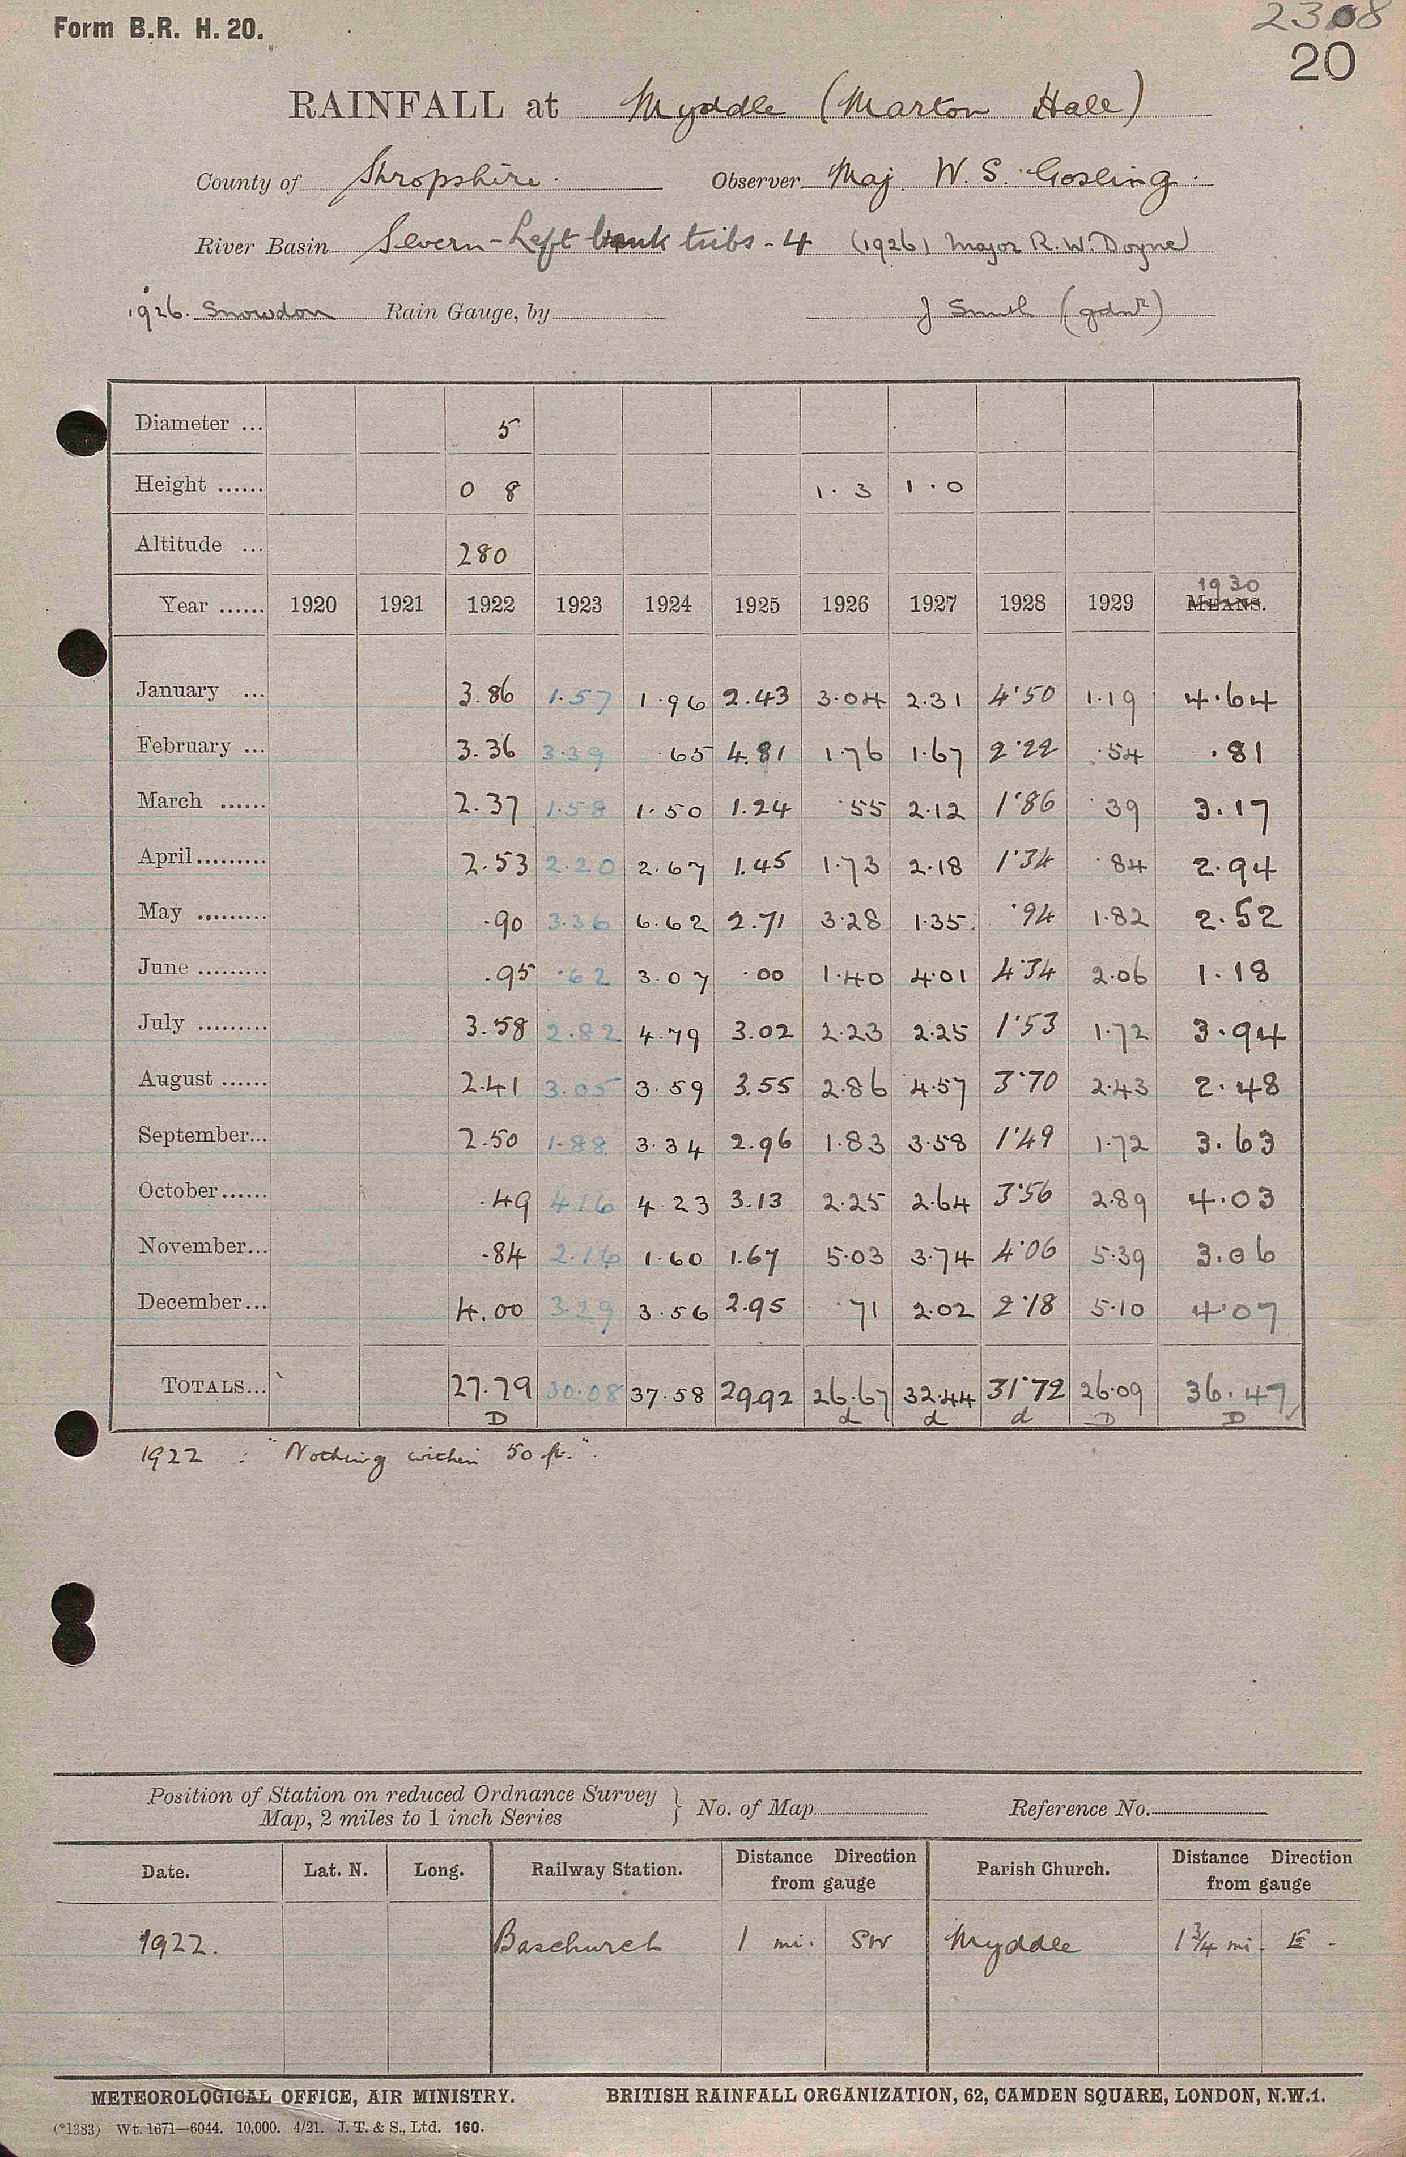 Form B.R. H. 20.
2308
20
RAINFALL at Myddle (Marton Hall)
County of Shropshire. Observer Maj. W. S. Gosling.
River Basin Severn - Left bank tribs - 4 (1926) Major R. W. Doyne
1926. Snowdon Rain Gauge, by J Smith (gdnr)
Diameter ... 5
Height ...... 0 8 1.3 1.0
Altitude ... 280
Year ...... 1920 1921 1922 1923 1924 1925 1926 1927 1928 1929 1930 MEANS.
January ... 3.86 1.57 1.96 2.43 3.04 2.31 4.50 1.19 4.64
February ... 3.36 3.39 .65 4.81 1.76 1.67 2.22 .54 .81
March ...... 2.37 1.58 1.50 1.24 .55 2.12 1.86 .39 3.17
April......... 2.53 2.20 2.67 1.45 1.73 2.18 1.34 .84 2.94
May ......... .90 3.36 6.62 2.71 3.28 1.35 .94 1.82 2.52
June ......... .95 .62 3.07 .00 1.40 4.01 4.34 2.06 1.18
July ......... 3.58 2.82 4.79 3.02 2.23 2.25 1.53 1.72 3.94
August ...... 2.41 3.05 3.59 3.55 2.86 4.57 3.70 2.43 2.48
September... 2.50 1.88 3.34 2.96 1.83 3.58 1.49 1.72 3.63
October...... .49 4.16 4.23 3.13 2.25 2.64 3.56 2.89 4.03
November... .84 2.16 1.60 1.67 5.03 3.74 4.06 5.39 3.06
December... 4.00 3.29 3.56 2.95 .71 2.02 2.18 5.10 4.07
TOTALS... 27.79 30.08 37.58 29.92 26.67 32.44 31.72 26.09 36.47
D d d d D D
1922 : "Nothing within 50 ft."
Position of Station on reduced Ordnance Survey Map, 2 miles to 1 inch Series } No. of Map Reference No.
Date. Lat. N. Long. Railway Station. Distance Direction from gauge Parish Church. Distance Direction from gauge
1922. Baschurch 1 mi. SW Myddle 1 3/4 mi. E -
METEOROLOGICAL OFFICE, AIR MINISTRY. BRITISH RAINFALL ORGANIZATION, 62, CAMDEN SQUARE, LONDON, N.W.1.
(*1383) Wt. 1671—6044. 10,000. 4/21. J. T. & S., Ltd. 160.